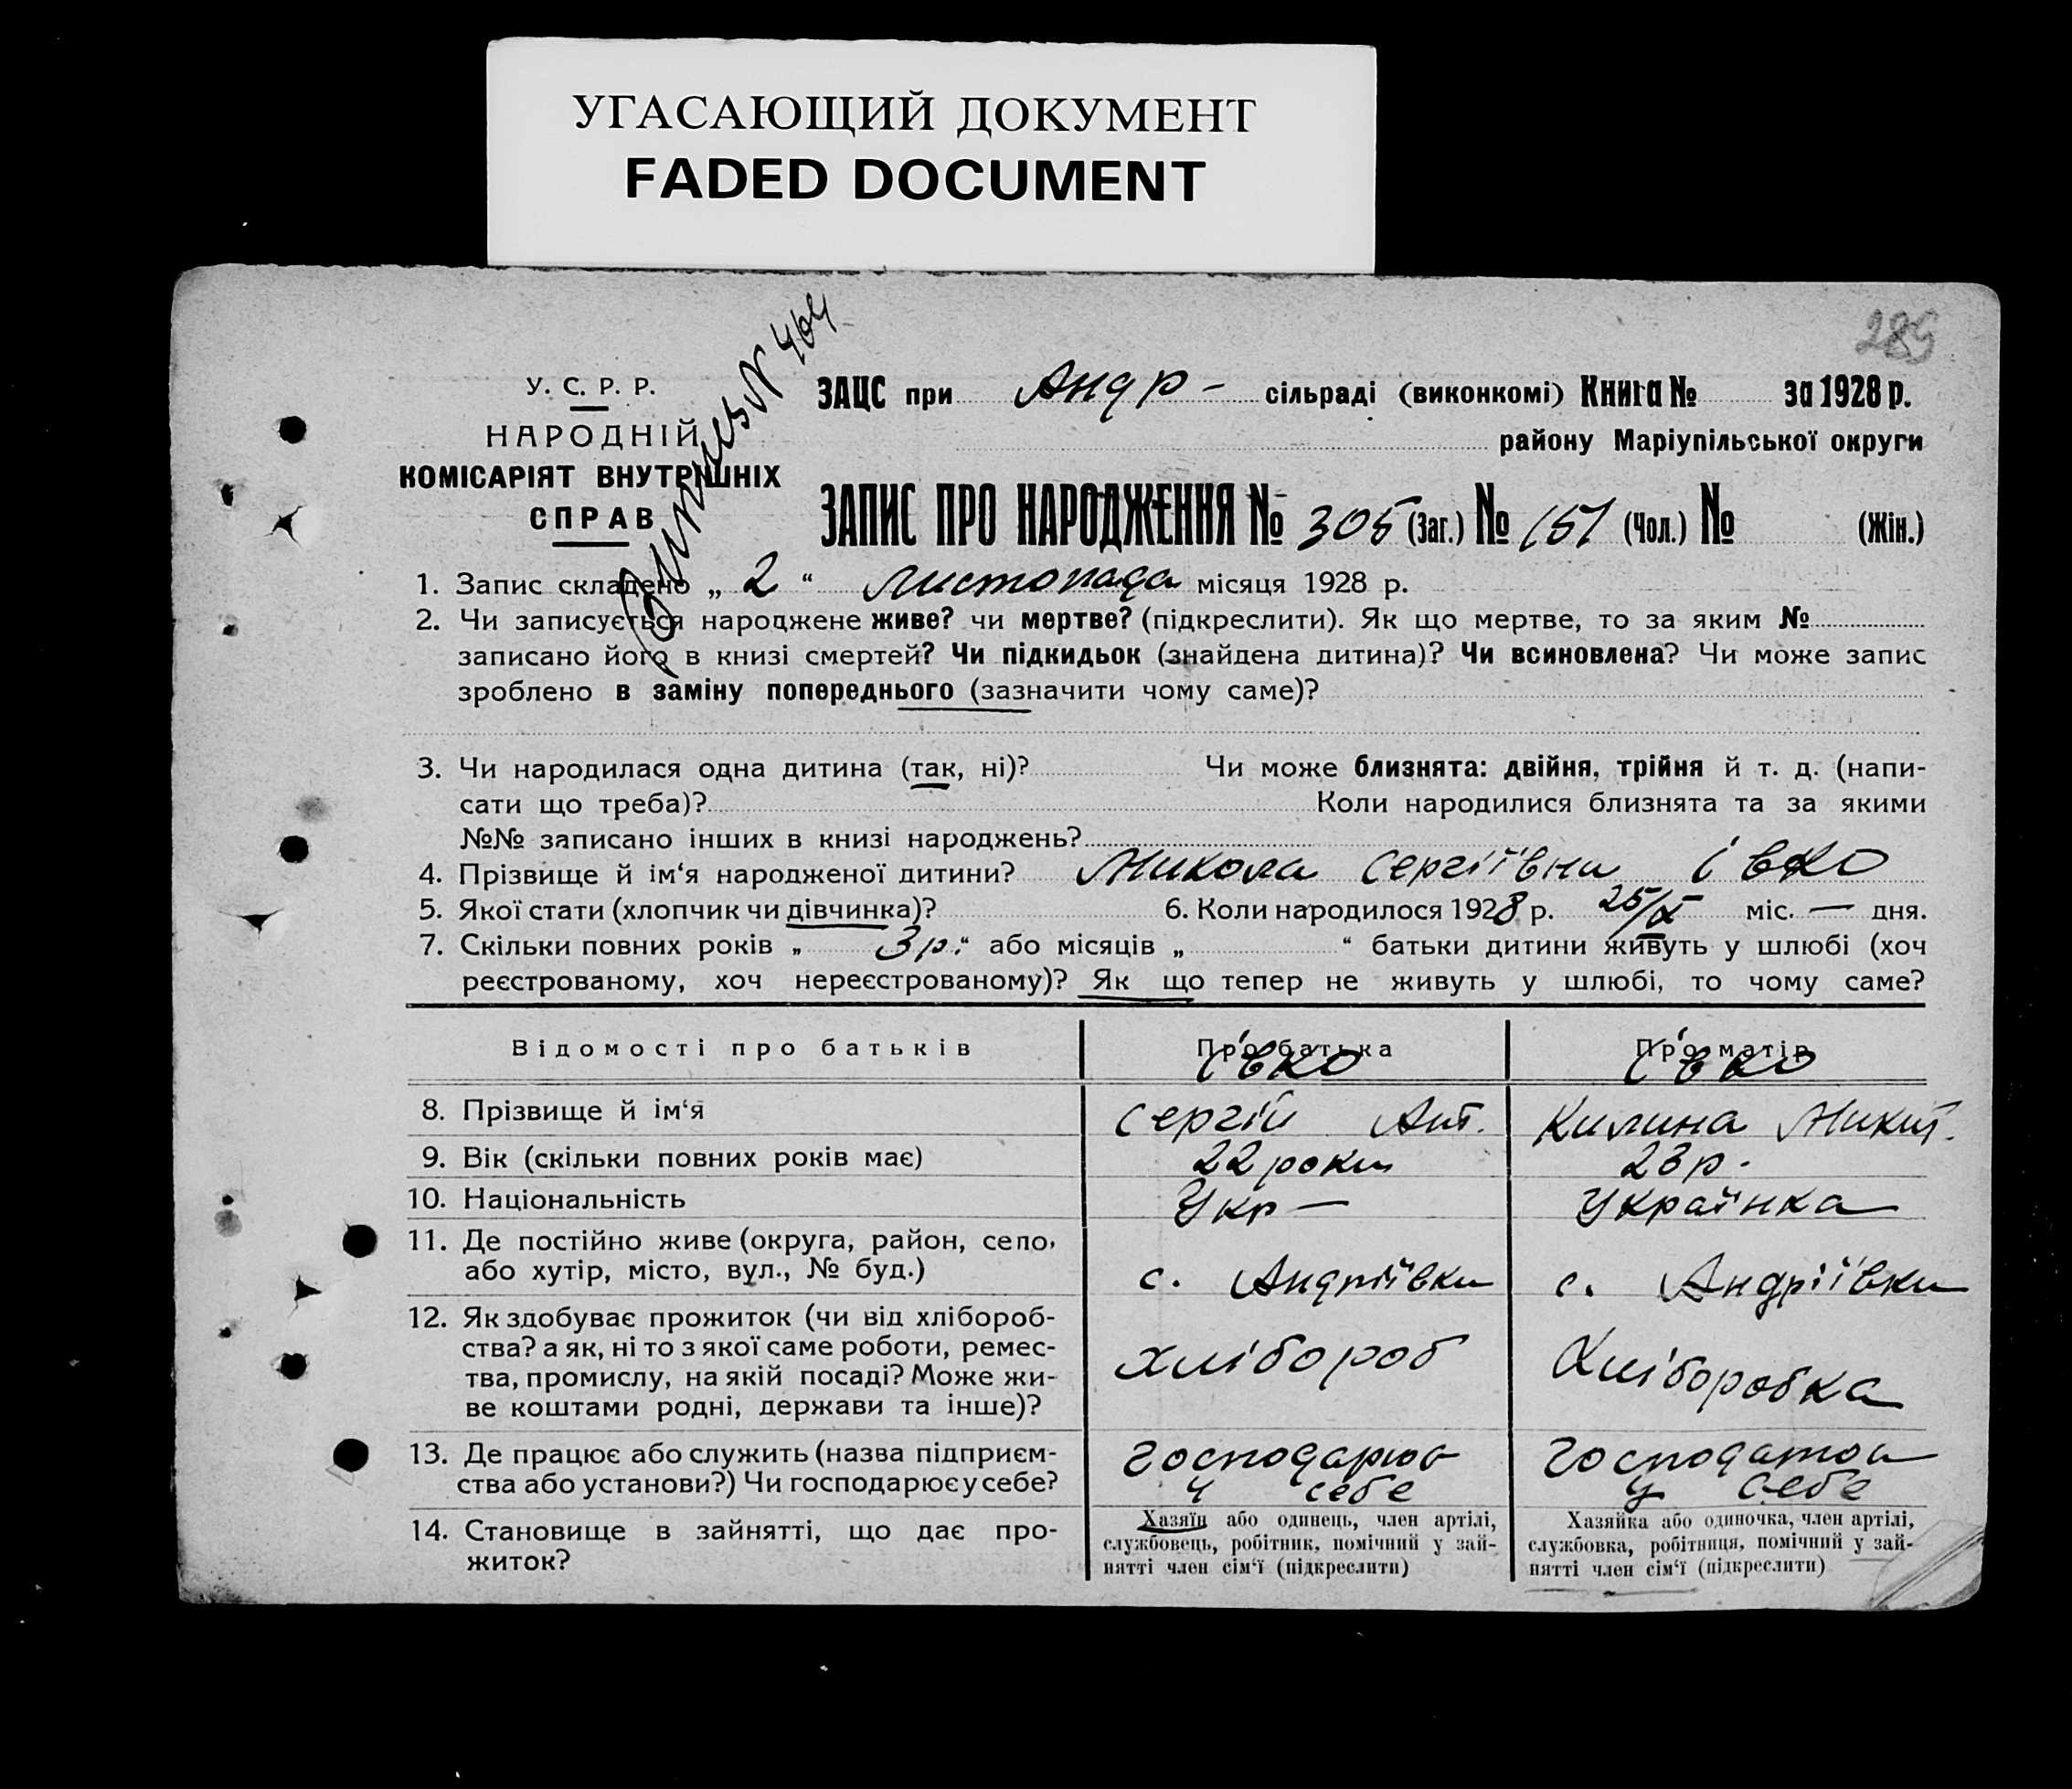 УГАСАЮЩИЙ ДОКУМЕНТ
FADED DOCUMENT
289
У. С. Р. Р.
НАРОДНІЙ
КОМІСАРІЯТ ВНУТРІШНІХ
СПРАВ
№ 464
ЗАЦС при Андр- сільраді (виконкомі) Книга № за 1928 р.
району Маріупільської округи
ЗАПИС ПРО НАРОДЖЕННЯ № 305 (Заг.) № 151 (Чол.) № (Жін.)
1. Запис складено „ 2 “ Листопада місяця 1928 р.
2. Чи записується народжене живе? чи мертве? (підкреслити). Як що мертве, то за яким №
записано його в книзі смертей? Чи підкидьок (знайдена дитина)? Чи всиновлена? Чи може запис
зроблено в заміну попереднього (зазначити чому саме)?
3. Чи народилася одна дитина (так, ні)? Чи може близнята: двійня, трійня й т. д. (напи-
сати що треба)? Коли народилися близнята та за якими
№№ записано інших в книзі народжень?
4. Прізвище й ім‘я народженої дитини? Микола Сергіївни Івко
5. Якої стати (хлопчик чи дівчинка)? 6. Коли народилося 1928 р. 25/X міс. — дня.
7. Скільки повних років „ 3 р. “ або місяців „ “ батьки дитини живуть у шлюбі (хоч
реєстрованому, хоч нереєстрованому)? Як що тепер не живуть у шлюбі, то чому саме?
Відомості про батьків Про батька Про матір
Івко Івко
8. Прізвище й ім‘я Сергій Ант. Килина Микит.
9. Вік (скільки повних років має) 22 роки 23 р.
10. Національність Укр — Українка
11. Де постійно живе (округа, район, село,
або хутір, місто, вул., № буд.) с. Андріївки с. Андріївки
12. Як здобуває прожиток (чи від хлібороб-
ства? а як, ні то з якої саме роботи, ремес-
тва, промислу, на якій посаді? Може жи-
ве коштами родні, держави та інше)?
хлібороб Хліборобка
13. Де працює або служить (назва підприєм-
ства або установи?) Чи господарює у себе?
Господарює
у себе
у себе
14. Становище в зайнятті, що дає про-
житок?
Хазяїн або одинець, член артілі,
службовець, робітник, помічний у зай-
нятті член сім‘ї (підкреслити)
Хазяйка або одиночка, член артілі,
службовка, робітниця, помічний у зай-
нятті член сім‘ї (підкреслити)